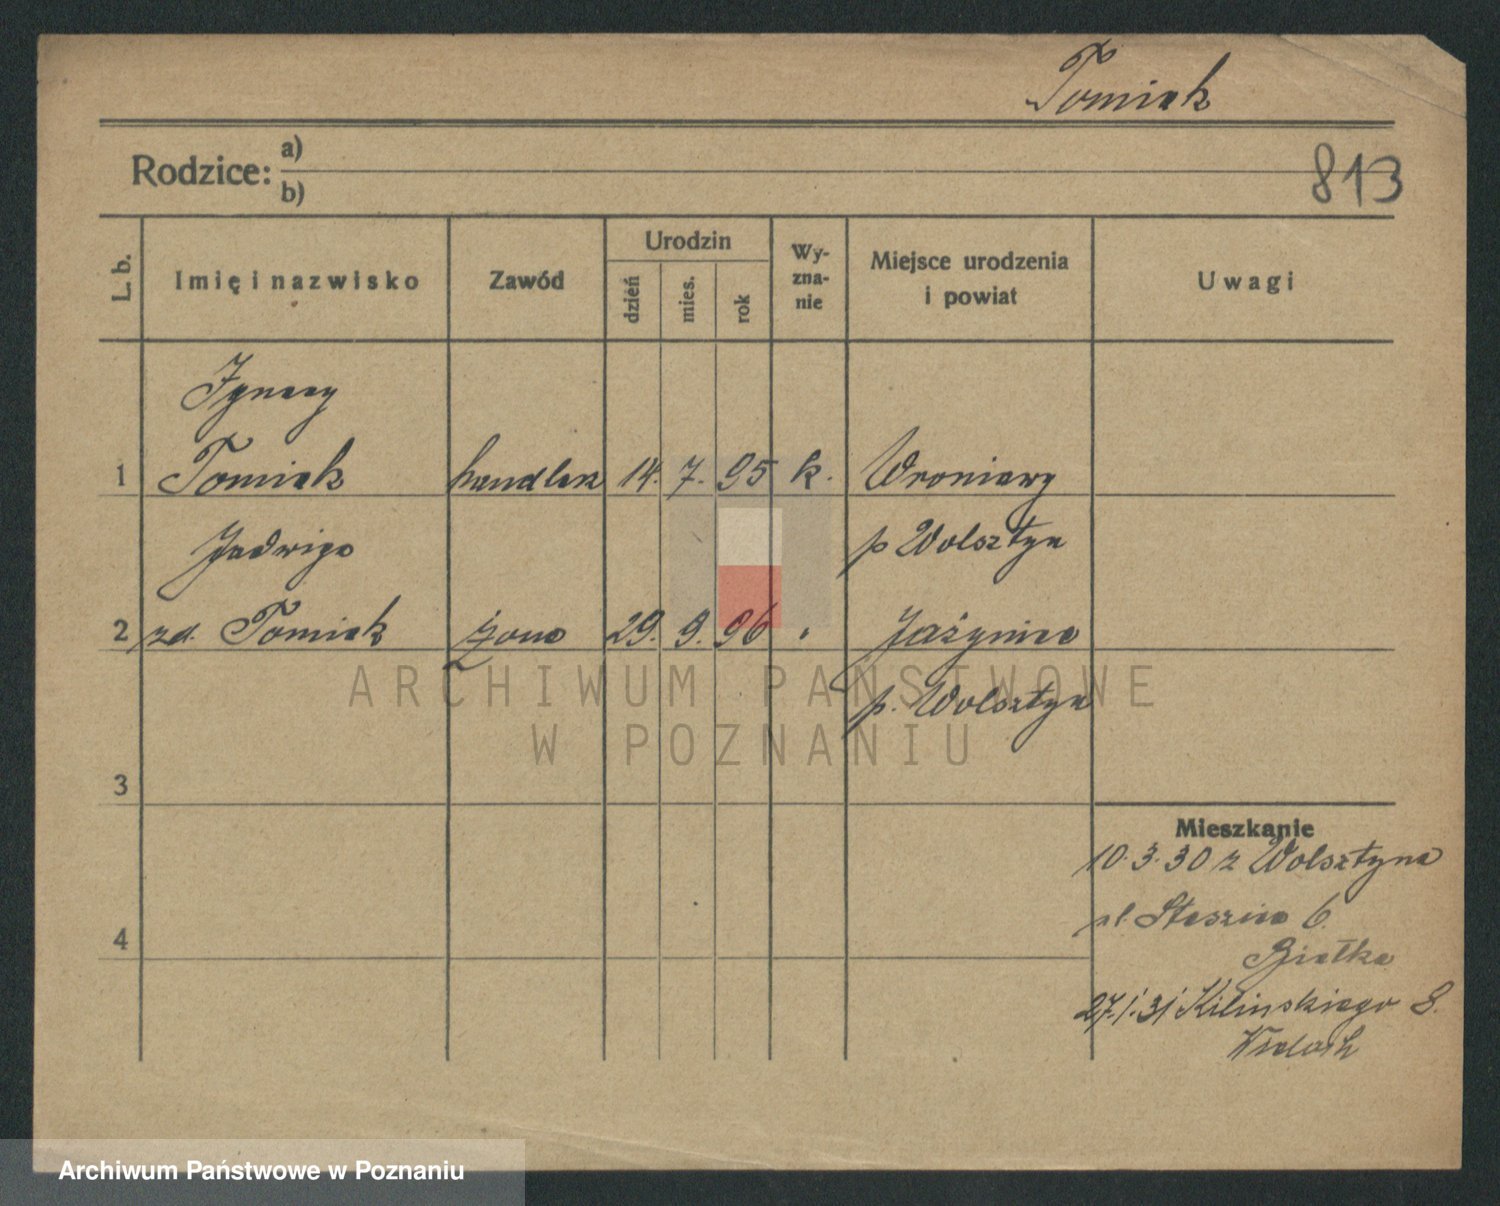 Tomiak
Rodzice: a)
b)
813
L. b.
Imię i nazwisko
Zawód
Urodzin
dzień
mies.
rok
Wy-
zna-
nie
Miejsce urodzenia
i powiat
Uwagi
Ignacy
1 Tomiak handlarz 14. 7. 95 k. Wroniawy
Jadwiga p Wolsztyn
2 zd. Tomiak żona 29. 9. 96 " Jażyniec
p. Wolsztyn
ARCHIWUM PAŃSTWOWE
W POZNANIU
3
4
Mieszkanie
10.3.30 z Wolsztyna
pl. Staszica 6
Białka
27.1.31 Kilińskiego 8.
Archiwum Państwowe w Poznaniu